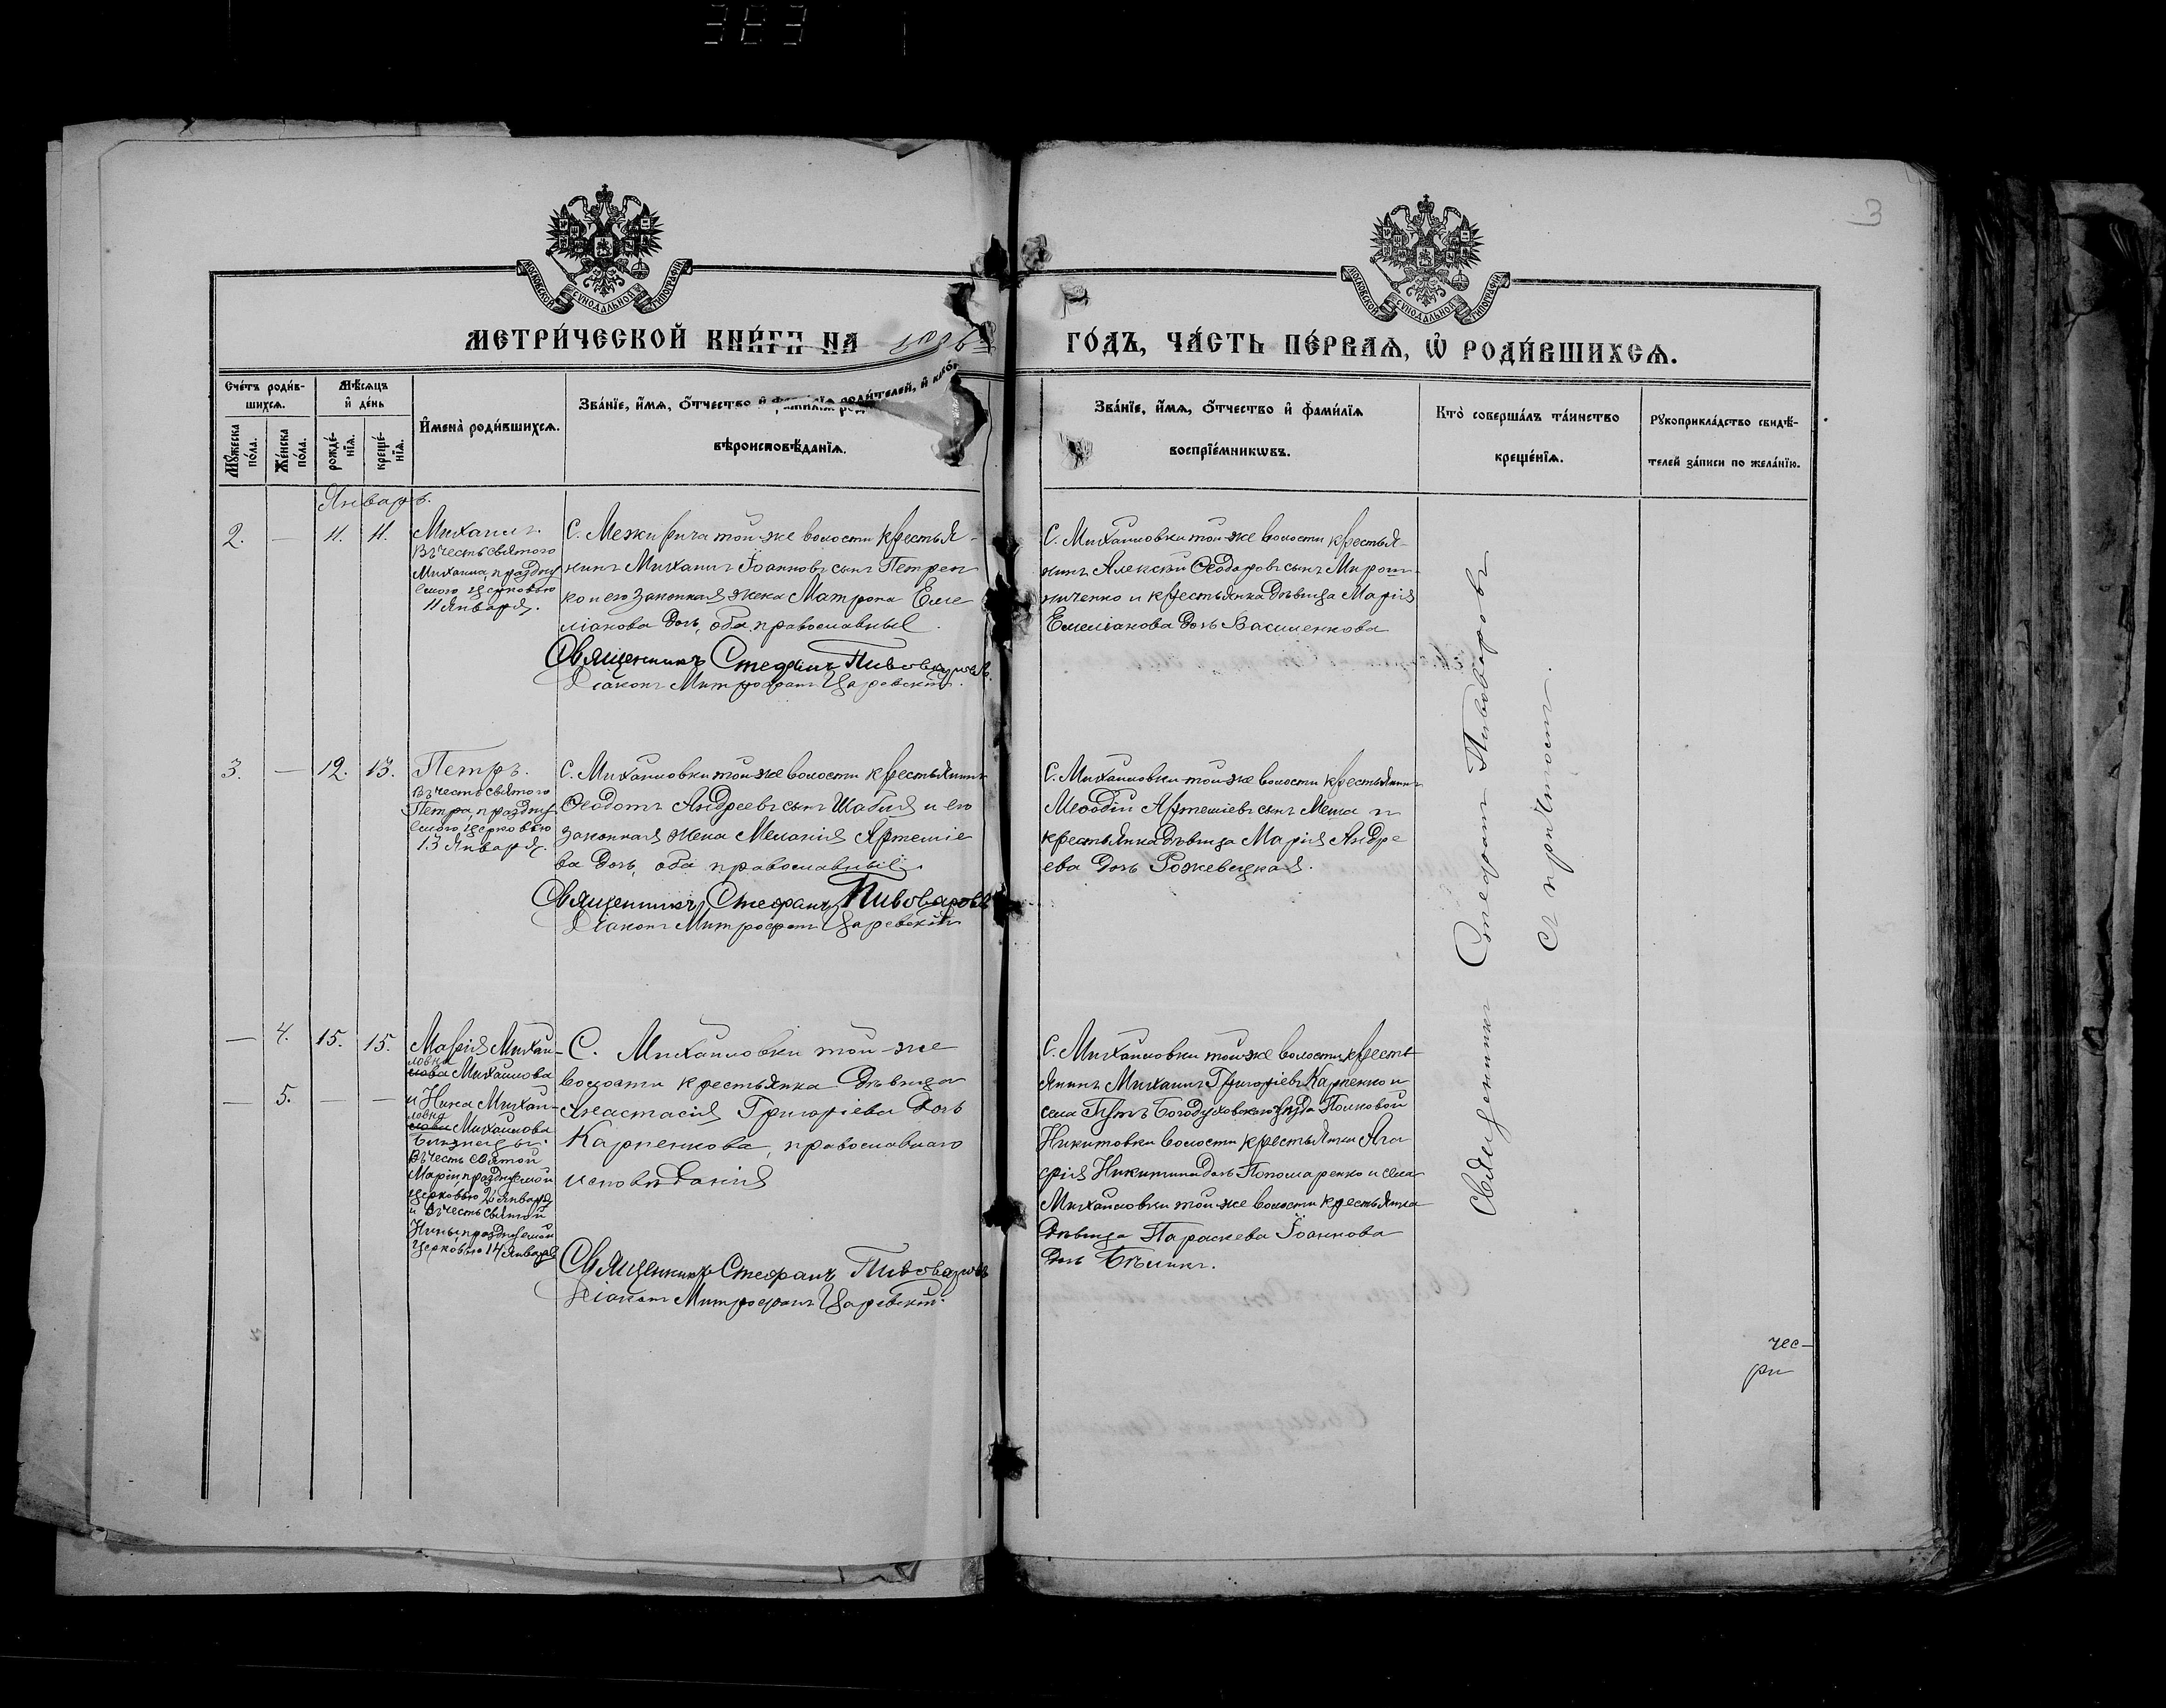 383
3
МОСКОВСКОЙ СѴНОДАЛЬНОЙ ТИПОГРАФІИ
МОСКОВСКОЙ СѴНОДАЛЬНОЙ ТИПОГРАФІИ
МЕТРИ́ЧЕСКОЙ КНИ́ГИ НА
ГО́ДЪ, ЧА́СТЬ ПЕ́РВАѦ, Ѡ҆ РОДИ́ВШИХСѦ.
Сче́тъ роди́в-
шихсѧ.
Мꙋ́жеска
по́ла.
Же́нска
по́ла.
Мѣ́сѧцъ
и҆ де́нь
рожде́-
нїѧ.
креще́-
нїѧ.
И҆мена̀ роди́вшихсѧ.
Зва́нїе, и҆́мѧ, ѻ҆́тчество и҆ фами́лїѧ роди́телей, и҆
вѣроисповѣ́данїѧ.
Зва́нїе, и҆́мѧ, ѻ҆́тчество и҆ фами́лїѧ
воспрїе́мникѡвъ.
Кто̀ соверша́лъ та́инство
креще́нїѧ.
Рꙋкоприкла́дство свидѣ́-
телей за́писи по жела́нїю.
Январь.
2.
—
11.
11.
Михаилъ.
Въ честь святого
Михаила, праздну
емого церковью
11 Января.
С. Межирича той-же волости крестья-
нинъ Михаилъ Іоанновъ сынъ Петрен
ко и его законная жена Матрона Еме
ліанова дочь, оба православные.
Священникъ Стефанъ Пивоваровъ.
Діаконъ Митрофанъ Царевскій.
С. Михайловки той-же волости крестья-
нинъ Алексій Ѳеодоровъ сынъ Мирош-
ниченко и крестьянка дѣвица Марія
Емеліанова дочь Василенкова
Священникъ Стефанъ Пивоваровъ
съ причтомъ.
3.
—
12.
13.
Петръ.
Въ честь святого
Петра, праздну
емого церковью
13 Января.
С. Михайловки той-же волости крестьянинъ
Ѳеодотъ Андреевъ сынъ Шабля и его
законная жена Меланія Артеміе
ва дочь, оба православные
Священникъ Стефанъ Пивоваровъ
Діаконъ Митрофанъ Царевскій
С. Михайловки той-же волости крестьянинъ
Меѳодій Артеміевъ сынъ и
крестьянка дѣвица Марія Андре
ева дочь Рожевецкая.
—
4.
15.
15.
—
5.
—
—
Марія Михай-
ловна
Михайлова
и Нина Михай-
ловна
Михайлова
Близнецы.
Въ честь святой
Маріи, празднуемой
церковью 26 Января
и въ честь святой
Нины, празднуемой
церковью 14 Января
С. Михайловки той-же
волости крестьянка дѣвица
Анастасія Григоріева дочь
Карпенкова, православнаго
исповѣданія
Священникъ Стефанъ Пивоваровъ
Діаконъ Митрофанъ Царевскій.
С. Михайловки той-же волости кресть-
янинъ Михаилъ Григоріевъ Карпенко и
села Богодуховскаго уѣзда Полковой
Никитовки волости крестьянка Ага
фія Никитина дочь Пономаренко и села
Михайловки той-же волости крестьянка
дѣвица Параскева Іоаннова
дочь Бѣликъ.
чес-
ри